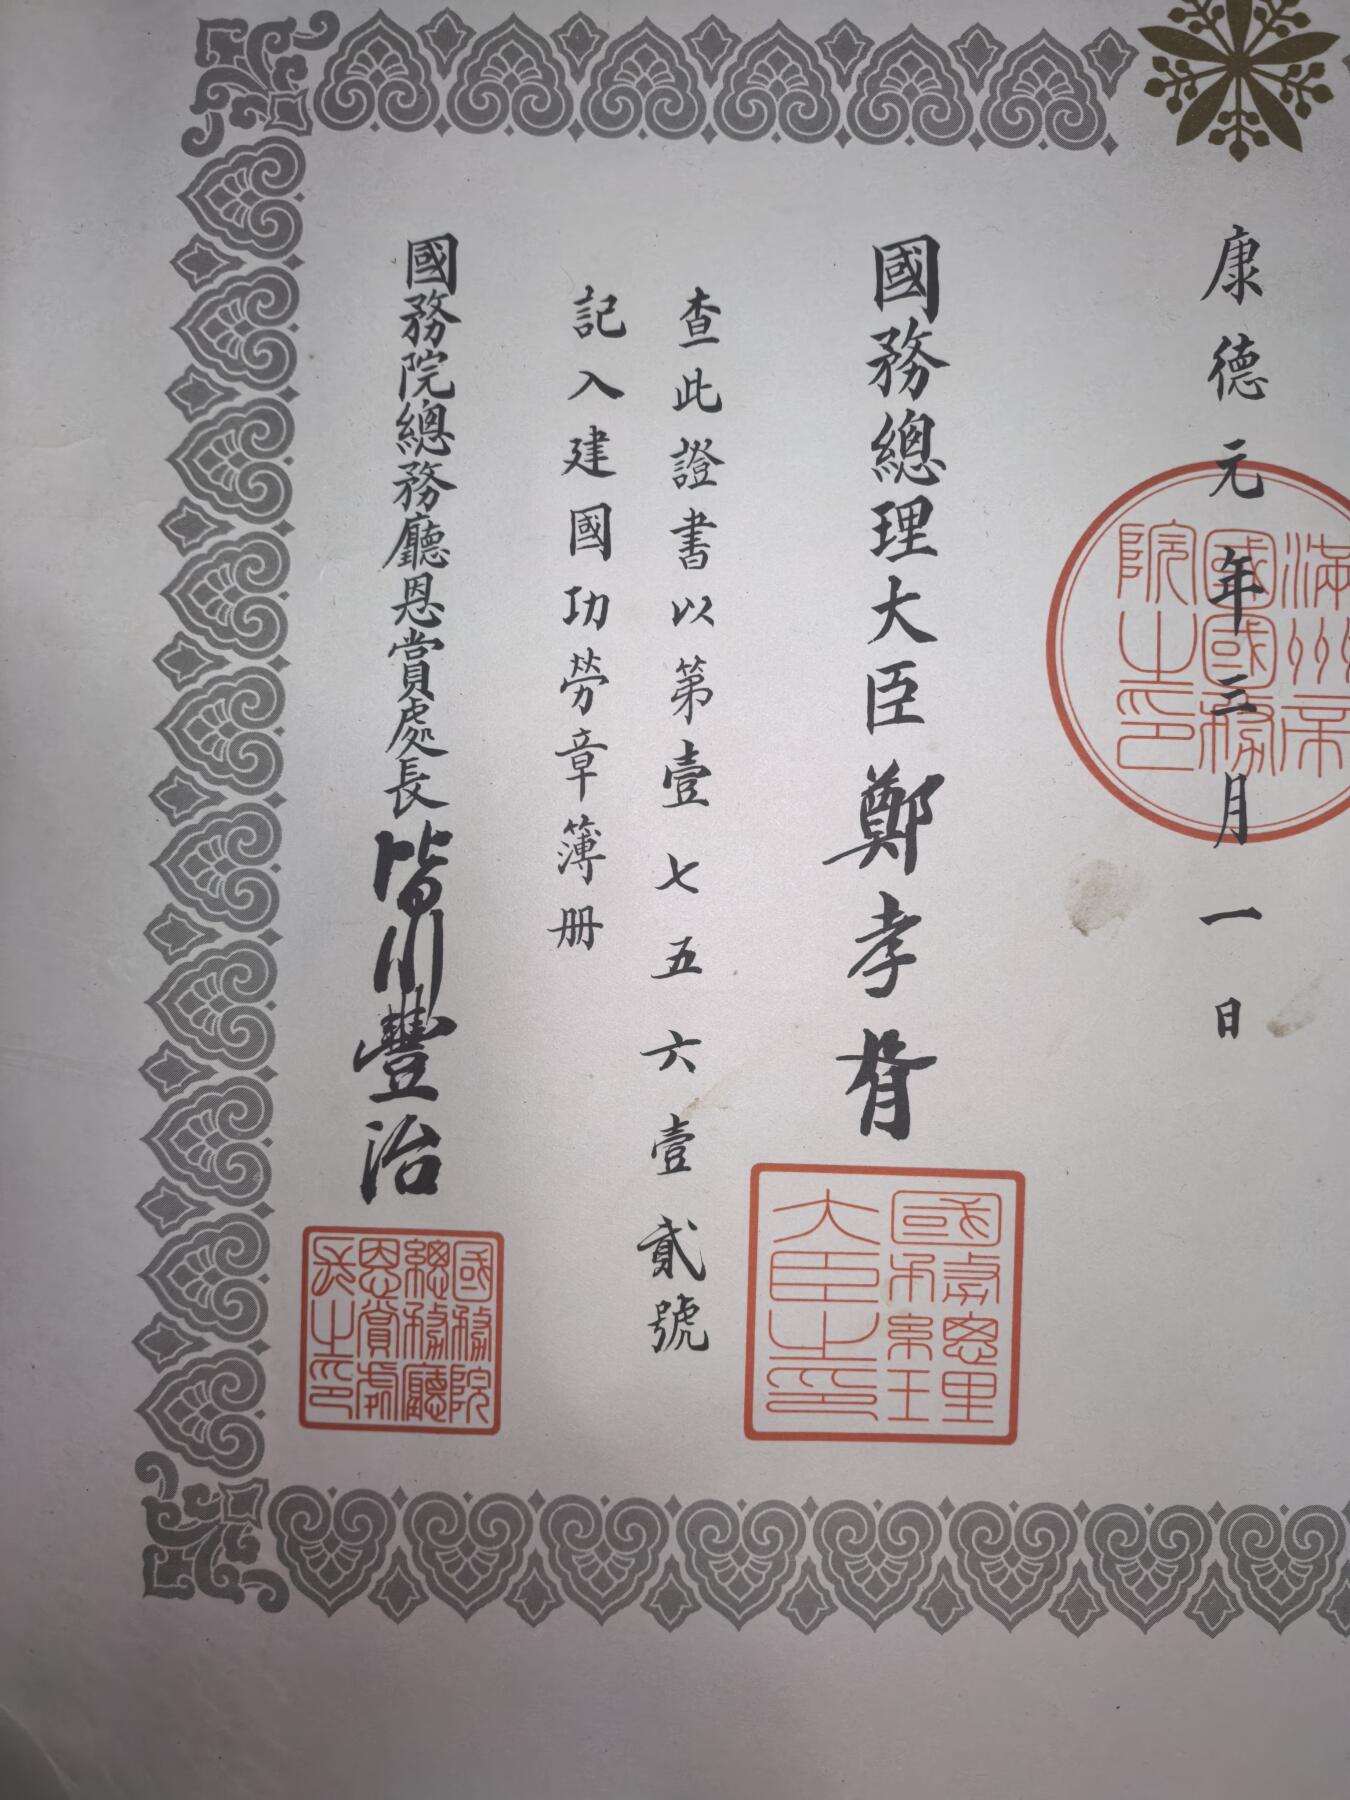 康德元年三月一日
滿州帝
國國務
院之印
國務總理大臣鄭孝胥
國務總理
大臣之印
查此證書以第壹七五六壹貳號
記入建國功勞章簿册
國務院總務廳恩賞處長皆川豐治
國務院
總務廳
恩賞處
長之印